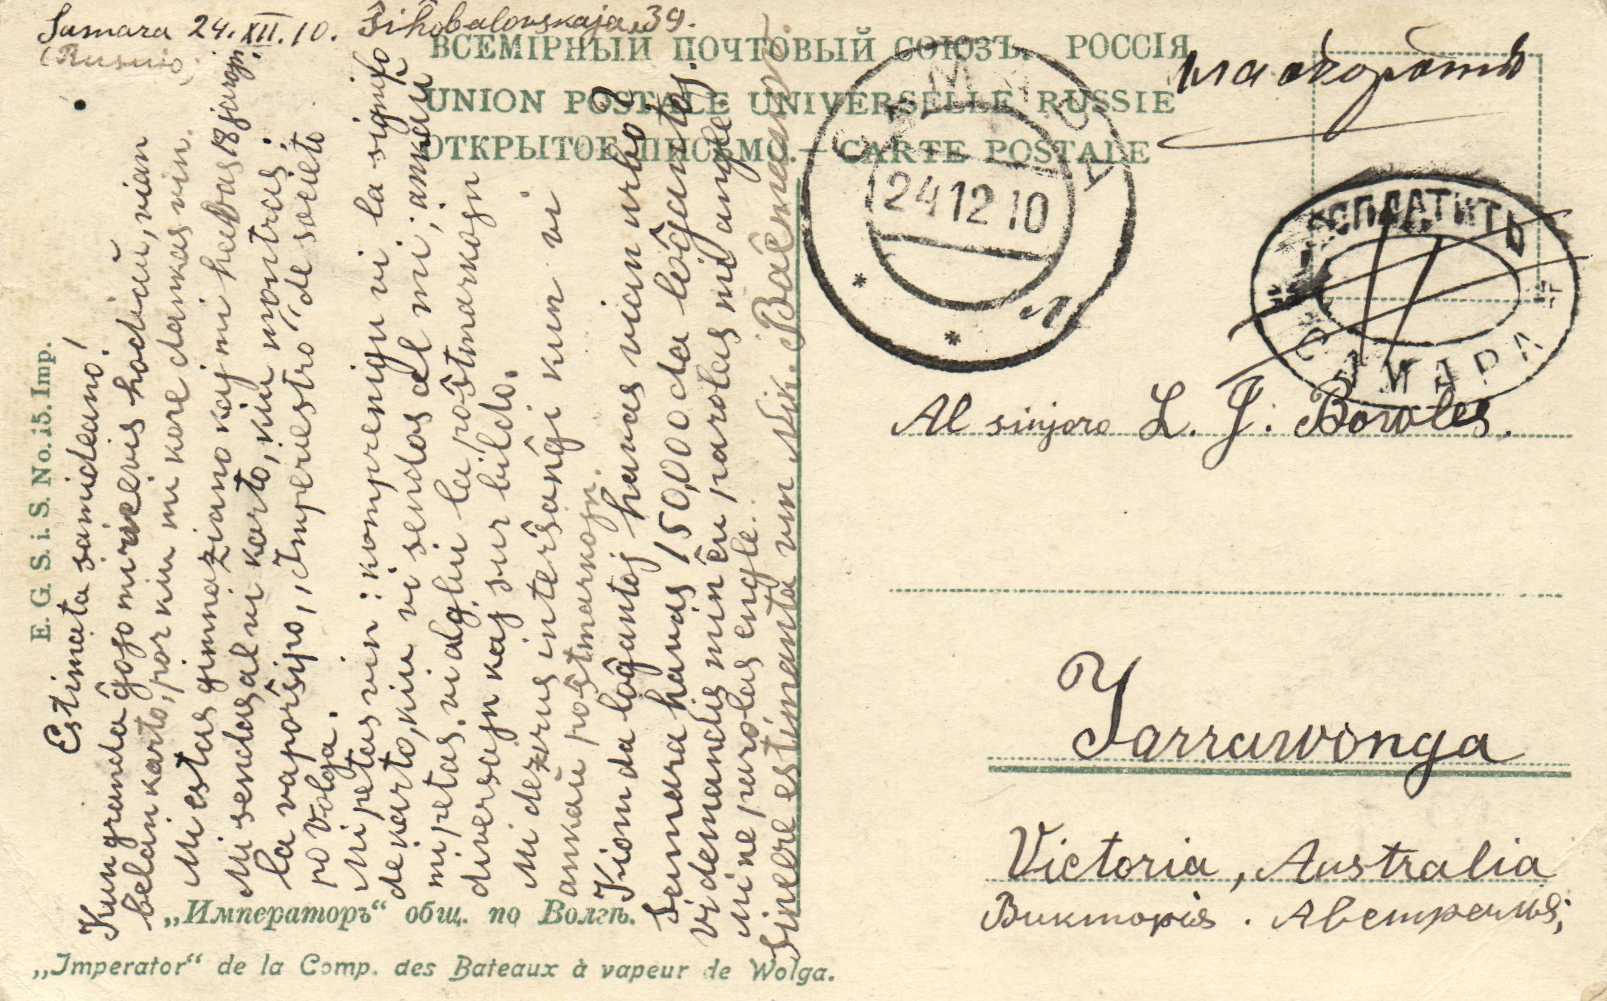 Samara 24.XII.10. Ŝiĥobalovskaja, 39.
(Rusujo)
ВСЕМІРНЫЙ ПОЧТОВЫЙ СОЮЗЪ. РОССІЯ
UNION POSTALE UNIVERSELLE RUSSIE
ОТКРЫТОЕ ПИСЬМО.—CARTE POSTALE
САМАРА
24 12 10
САМАРА
Al sinjoro L. J. Bowles.
Yarrawonga
Victoria, Australia
Викторія. Австралія
E. G. S. i. S. No. 15. Imp.
Estimata samideano!
Kun granda ĝojo mi ricevis hodiaŭ, vian
belan karto, por kiu mi kore dankas vin.
Mi estas gimnaziano kaj mi havas 18 jarojn.
Mi sendas al vi karto, kiu montras:
la vaporŝipo, „Imperiestro" de societo
po Volga.
Mi petas vin: komprenigu vi la signifo
de karto, kiu vi sendos al mi; ankaŭ
mi petas, vi algluu la poŝtmarkojn
diversajn kaj sur bildo.
Mi deziras interŝanĝi kun vi
ankaŭ poŝtmarkojn.
Kiom da loĝantoj havas vian urbo?
Samara havas 150,000 da loĝantoj.
Vi demandis min ĉu parolas mi angle:
Mi ne parolas engle.
Sincere estimanta vin Nik.
„Императоръ" общ. по Волгѣ.
„Imperator" de la Comp. des Bateaux à vapeur de Wolga.